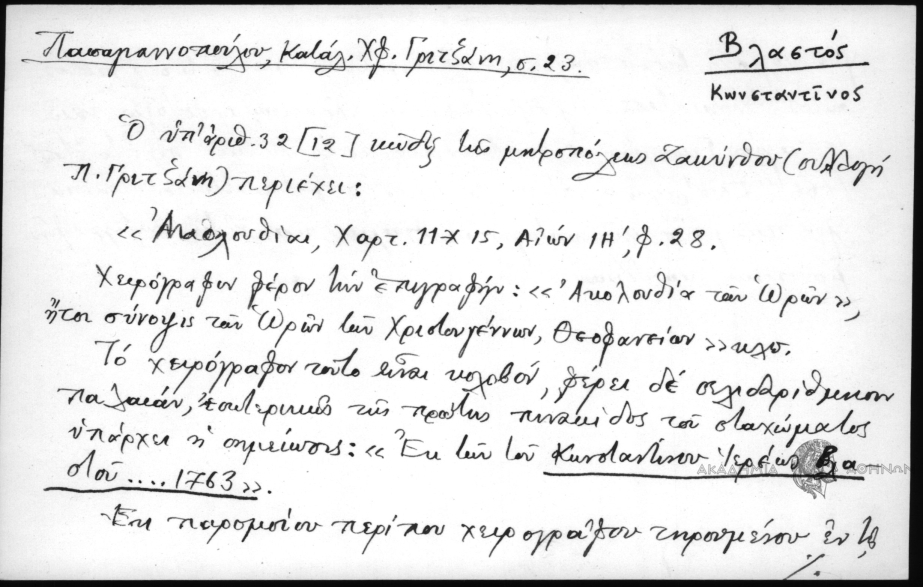 Παπαγιαννοπούλου, Κατάλ. Χφ. Γριτζάνη, σ. 23.
Βλαστός
Κωνσταντῖνος
Ὁ ὑπ' ἀριθ. 32 [12] κῶδιξ τῆς μητροπόλεως Ζακύνθου (συλλογή
Π. Γριτζάνη) περιέχει:
«Ἀκολουθίαι, Χαρτ. 11 Χ 15, Αἰών ΙΗ', φ. 28.
Χειρόγραφον φέρον τήν ἐπιγραφήν: «Ἀκολουθία τῶν Ὡρῶν»,
ἤτοι σύνοψις τῶν Ὡρῶν τῶν Χριστουγέννων, Θεοφανείων» κλπ.
Τό χειρόγραφον τοῦτο εἶναι κολοβόν, φέρει δέ σελιδαρίθμησιν
παλαιάν, ἐσωτερικῶς τῆς πρώτης πινακίδος τοῦ σταχώματος
ὑπάρχει ἡ σημείωσις: «Ἐκ τῶν τοῦ Κωνσταντίνου ἱερέως Βλα-
στοῦ .... 1763».
ΑΚΑΔΗΜΙΑ ΑΘΗΝΩΝ
Ἐκ παρομοίου περίπου χειρογράφου τηρουμένου ἐν τῷ
./.